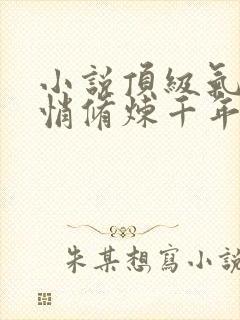 小説頂級氣
悄脩煉千年
朱某想寫小說